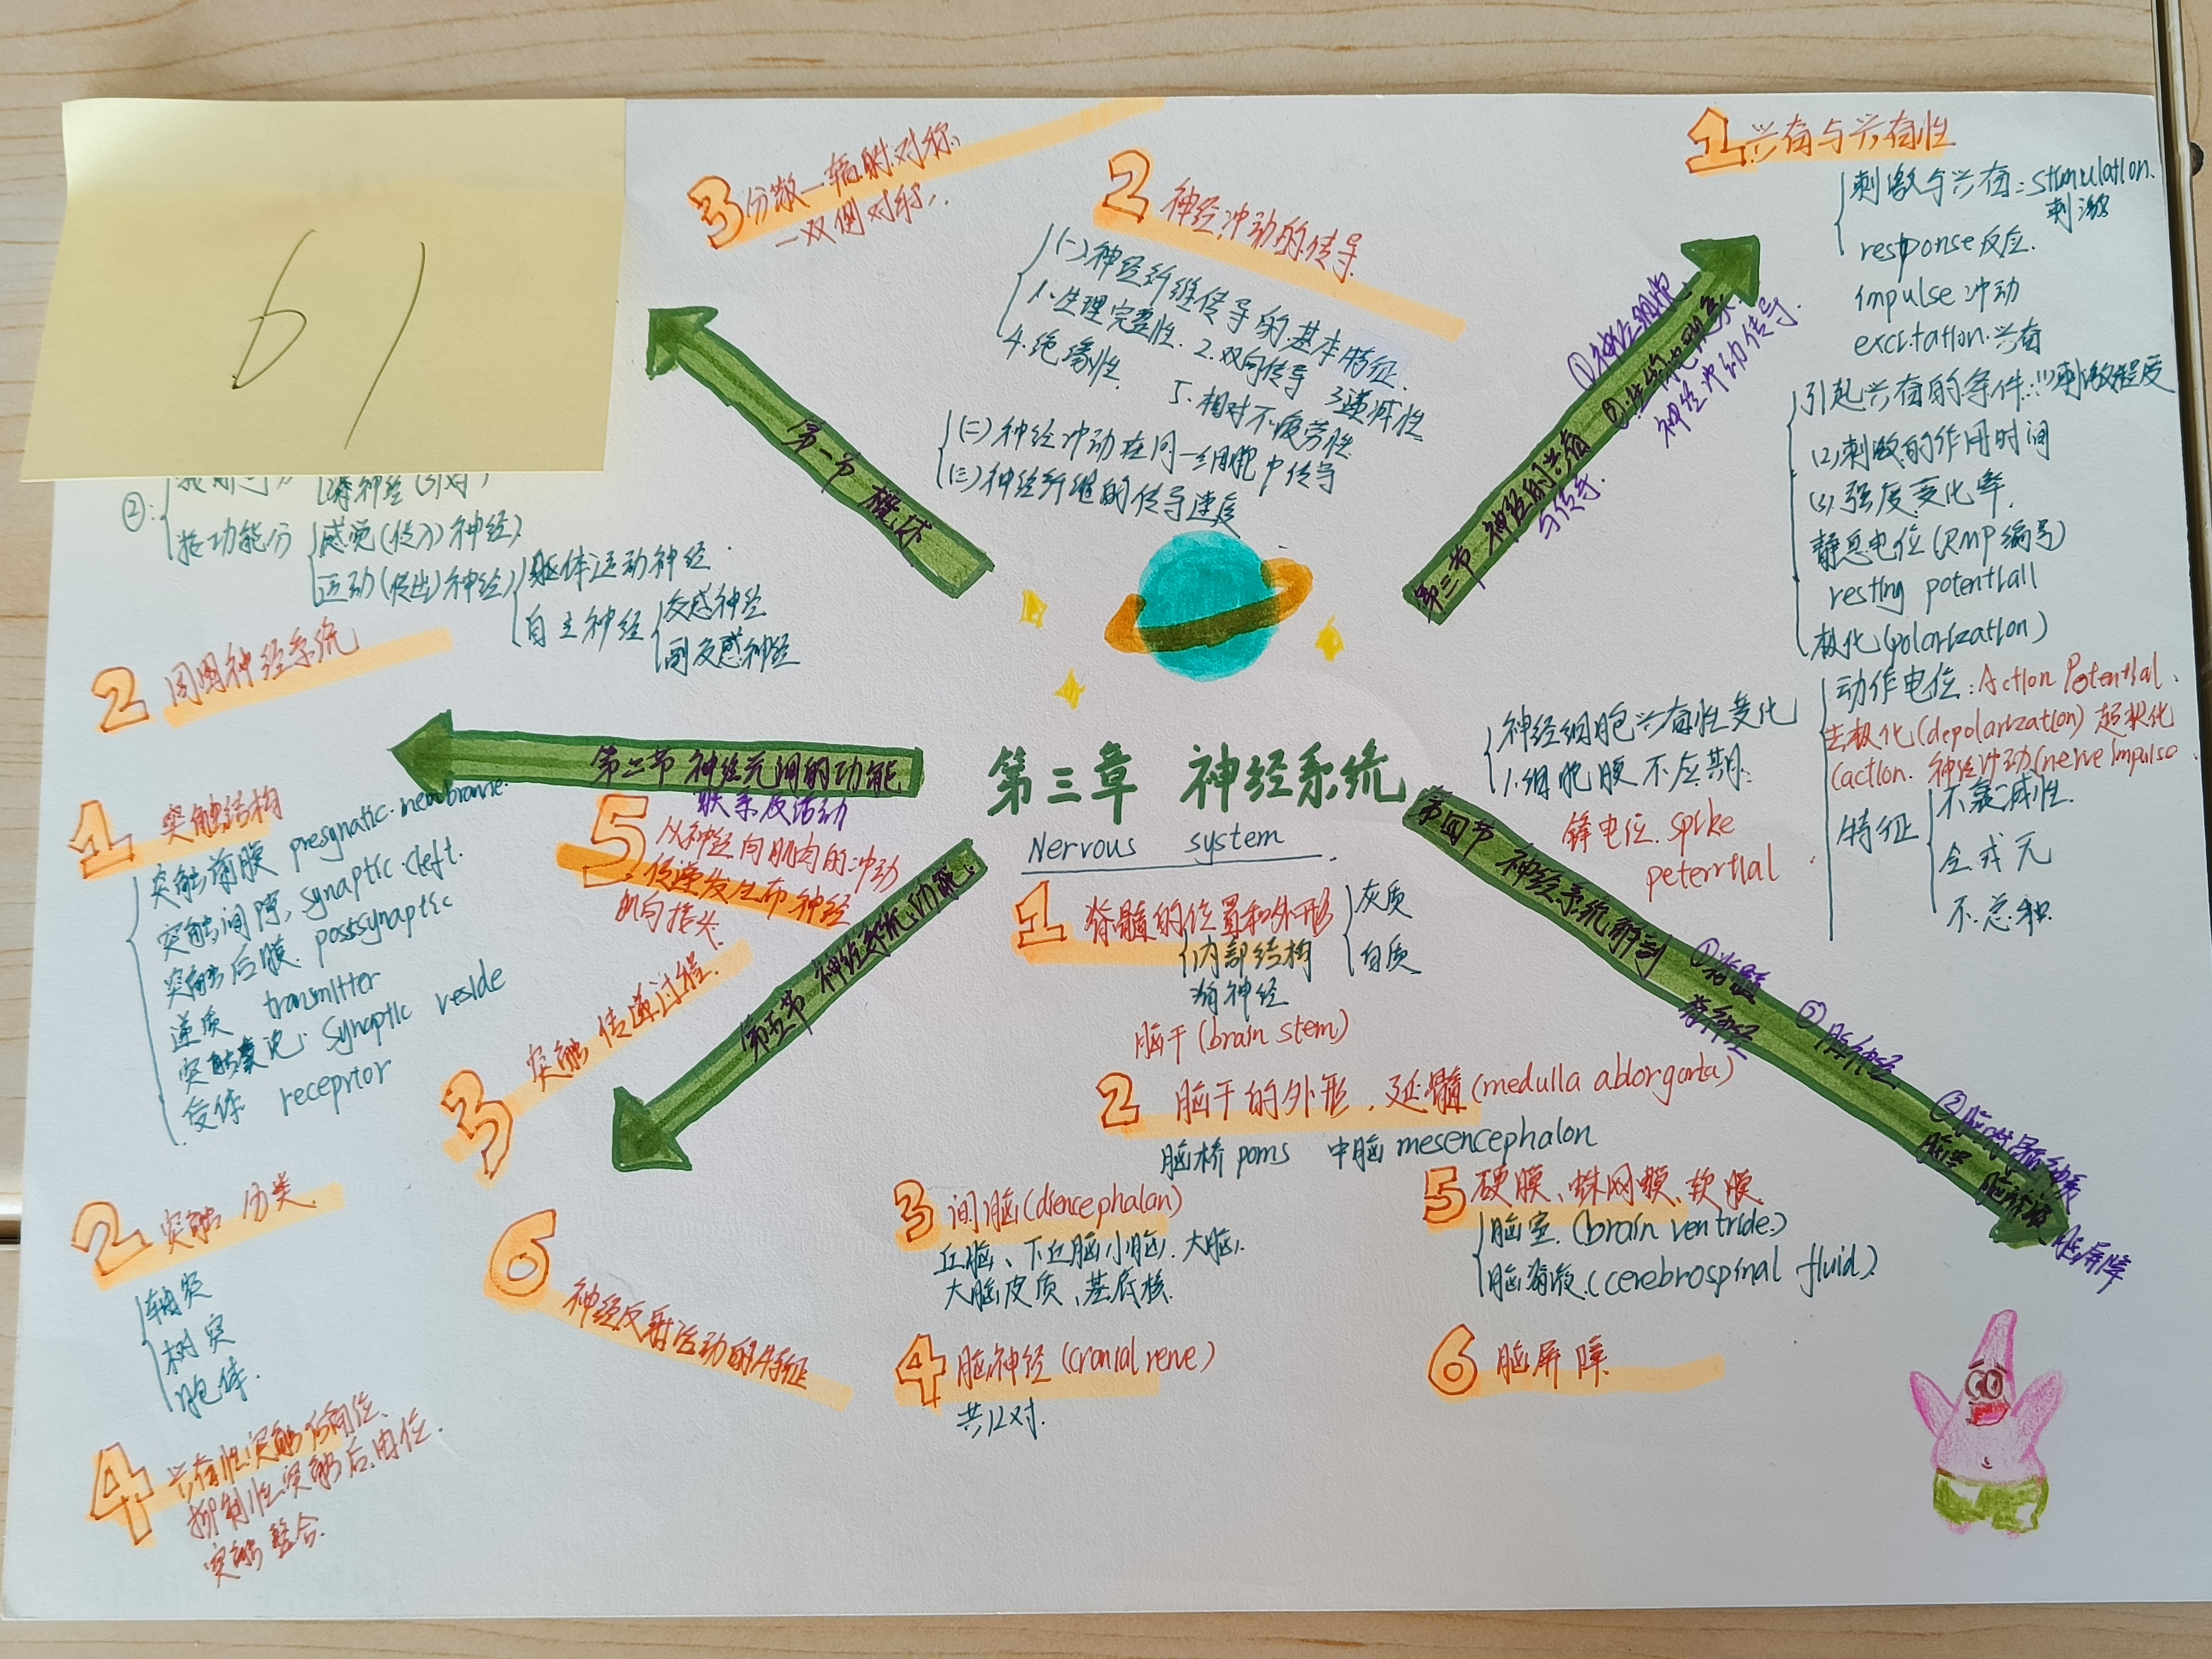 61
3 分散—辐射对称、
—双侧对称.
2 神经冲动的传导
(一)神经纤维传导的基本特征.
1.生理完整性. 2.双向传导 3递减性
4.绝缘性 5.相对不疲劳性
(二)神经冲动在同一细胞中传导
(三)神经纤维的传导速度
1 兴奋与兴奋性
刺激与兴奋:stimulation.
刺激
response反应.
impulse 冲动
excitation.兴奋
引起兴奋的条件:(1)刺激强度
(2)刺激的作用时间
(3)强度变化率.
静息电位(RMP编号)
resting potentiall
极化(polarization)
动作电位:Action Potential.
去极化(depolarization) 超极化
(action. 神经冲动(nerve impulse
特征
不衰减性.
全或无
不总和.
神经细胞兴奋性变化
1.细胞膜不应期:
锋电位.spike
peterrtial
第一节 概述
第三节 神经的兴奋
与传导.
①神经细胞
神经冲动传导.
②:
按功能分
感觉(传入)神经
运动(传出)神经
躯体运动神经.
自主神经
交感神经
副交感神经
2 周围神经系统
第二节 神经元间的功能
联系及活动
第三章 神经系统
Nervous system
1 突触结构
突触前膜 presynatic.nembrane.
突触间隙, synaptic cleft.
突触后膜. postsynaptic
递质 transmitter
突触囊泡: synaptic veside
受体 receprtor
5 从神经向肌肉的冲动
传递发生在神经
肌肉接头.
3 突触传递过程.
第五节 神经系统功能.
2 突触分类.
轴突
树突
胞体.
4
抑制性突触后电位.
突触整合.
6 神经反射活动的特征
第四节 神经系统解剖
①脊髓
脊神经
②脑神经
脑屏障
1 脊髓的位置和外形
内部结构
脊神经
灰质
白质
脑干(brain stem)
2 脑干的外形.延髓(medulla ablorgata)
脑桥 poms 中脑mesencephalon
3 间脑(diencephalan)
丘脑、下丘脑小脑. 大脑.
大脑皮质、基底核.
4 脑神经(cranial nerve)
共12对.
5 硬膜、蛛网膜、软膜.
脑室.(brain ventride.)
脑脊液.(cerebrospinal fluid).
6 脑屏障.